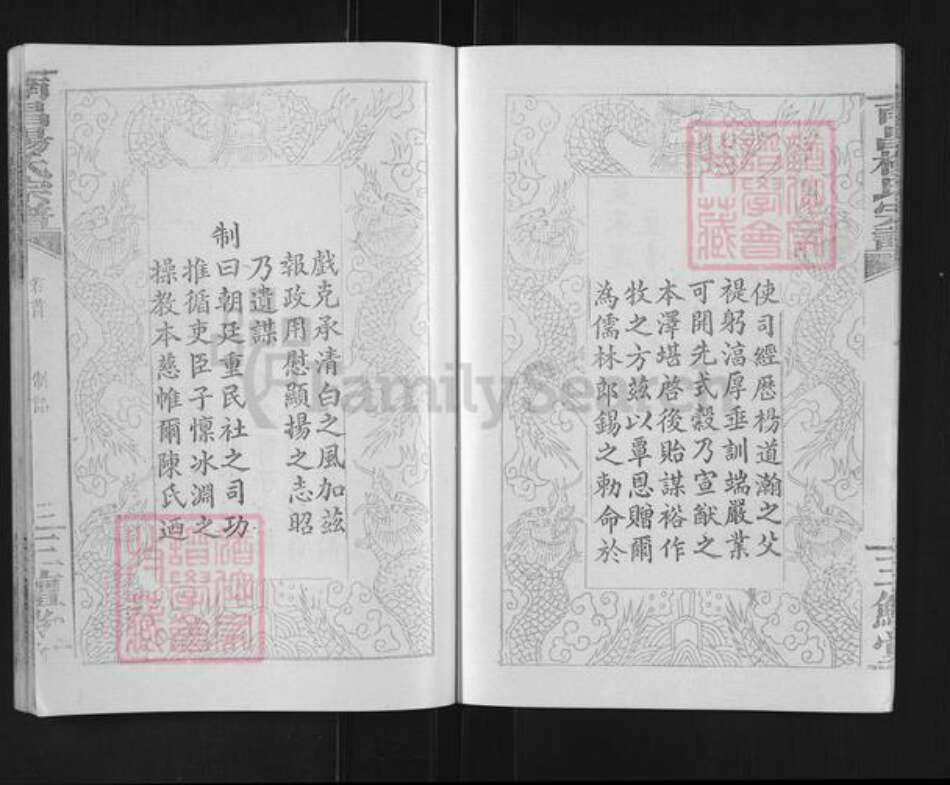 使司經歷楊道瀚之父
禔躬滈厚垂訓端嚴業
可開先式穀乃宣猷之
本澤堪啓後貽謀裕作
牧之方玆以覃恩贈爾
為儒林郎錫之勅命於
戲克承清白之風加兹
報政用慰顯揚之志昭
乃遺謀
制曰朝廷重民社之司功
推循吏臣子懍冰淵之
操教本慈帷爾陳氏迺
南昌楊氏宗譜
卷首
制誥
FamilySearch